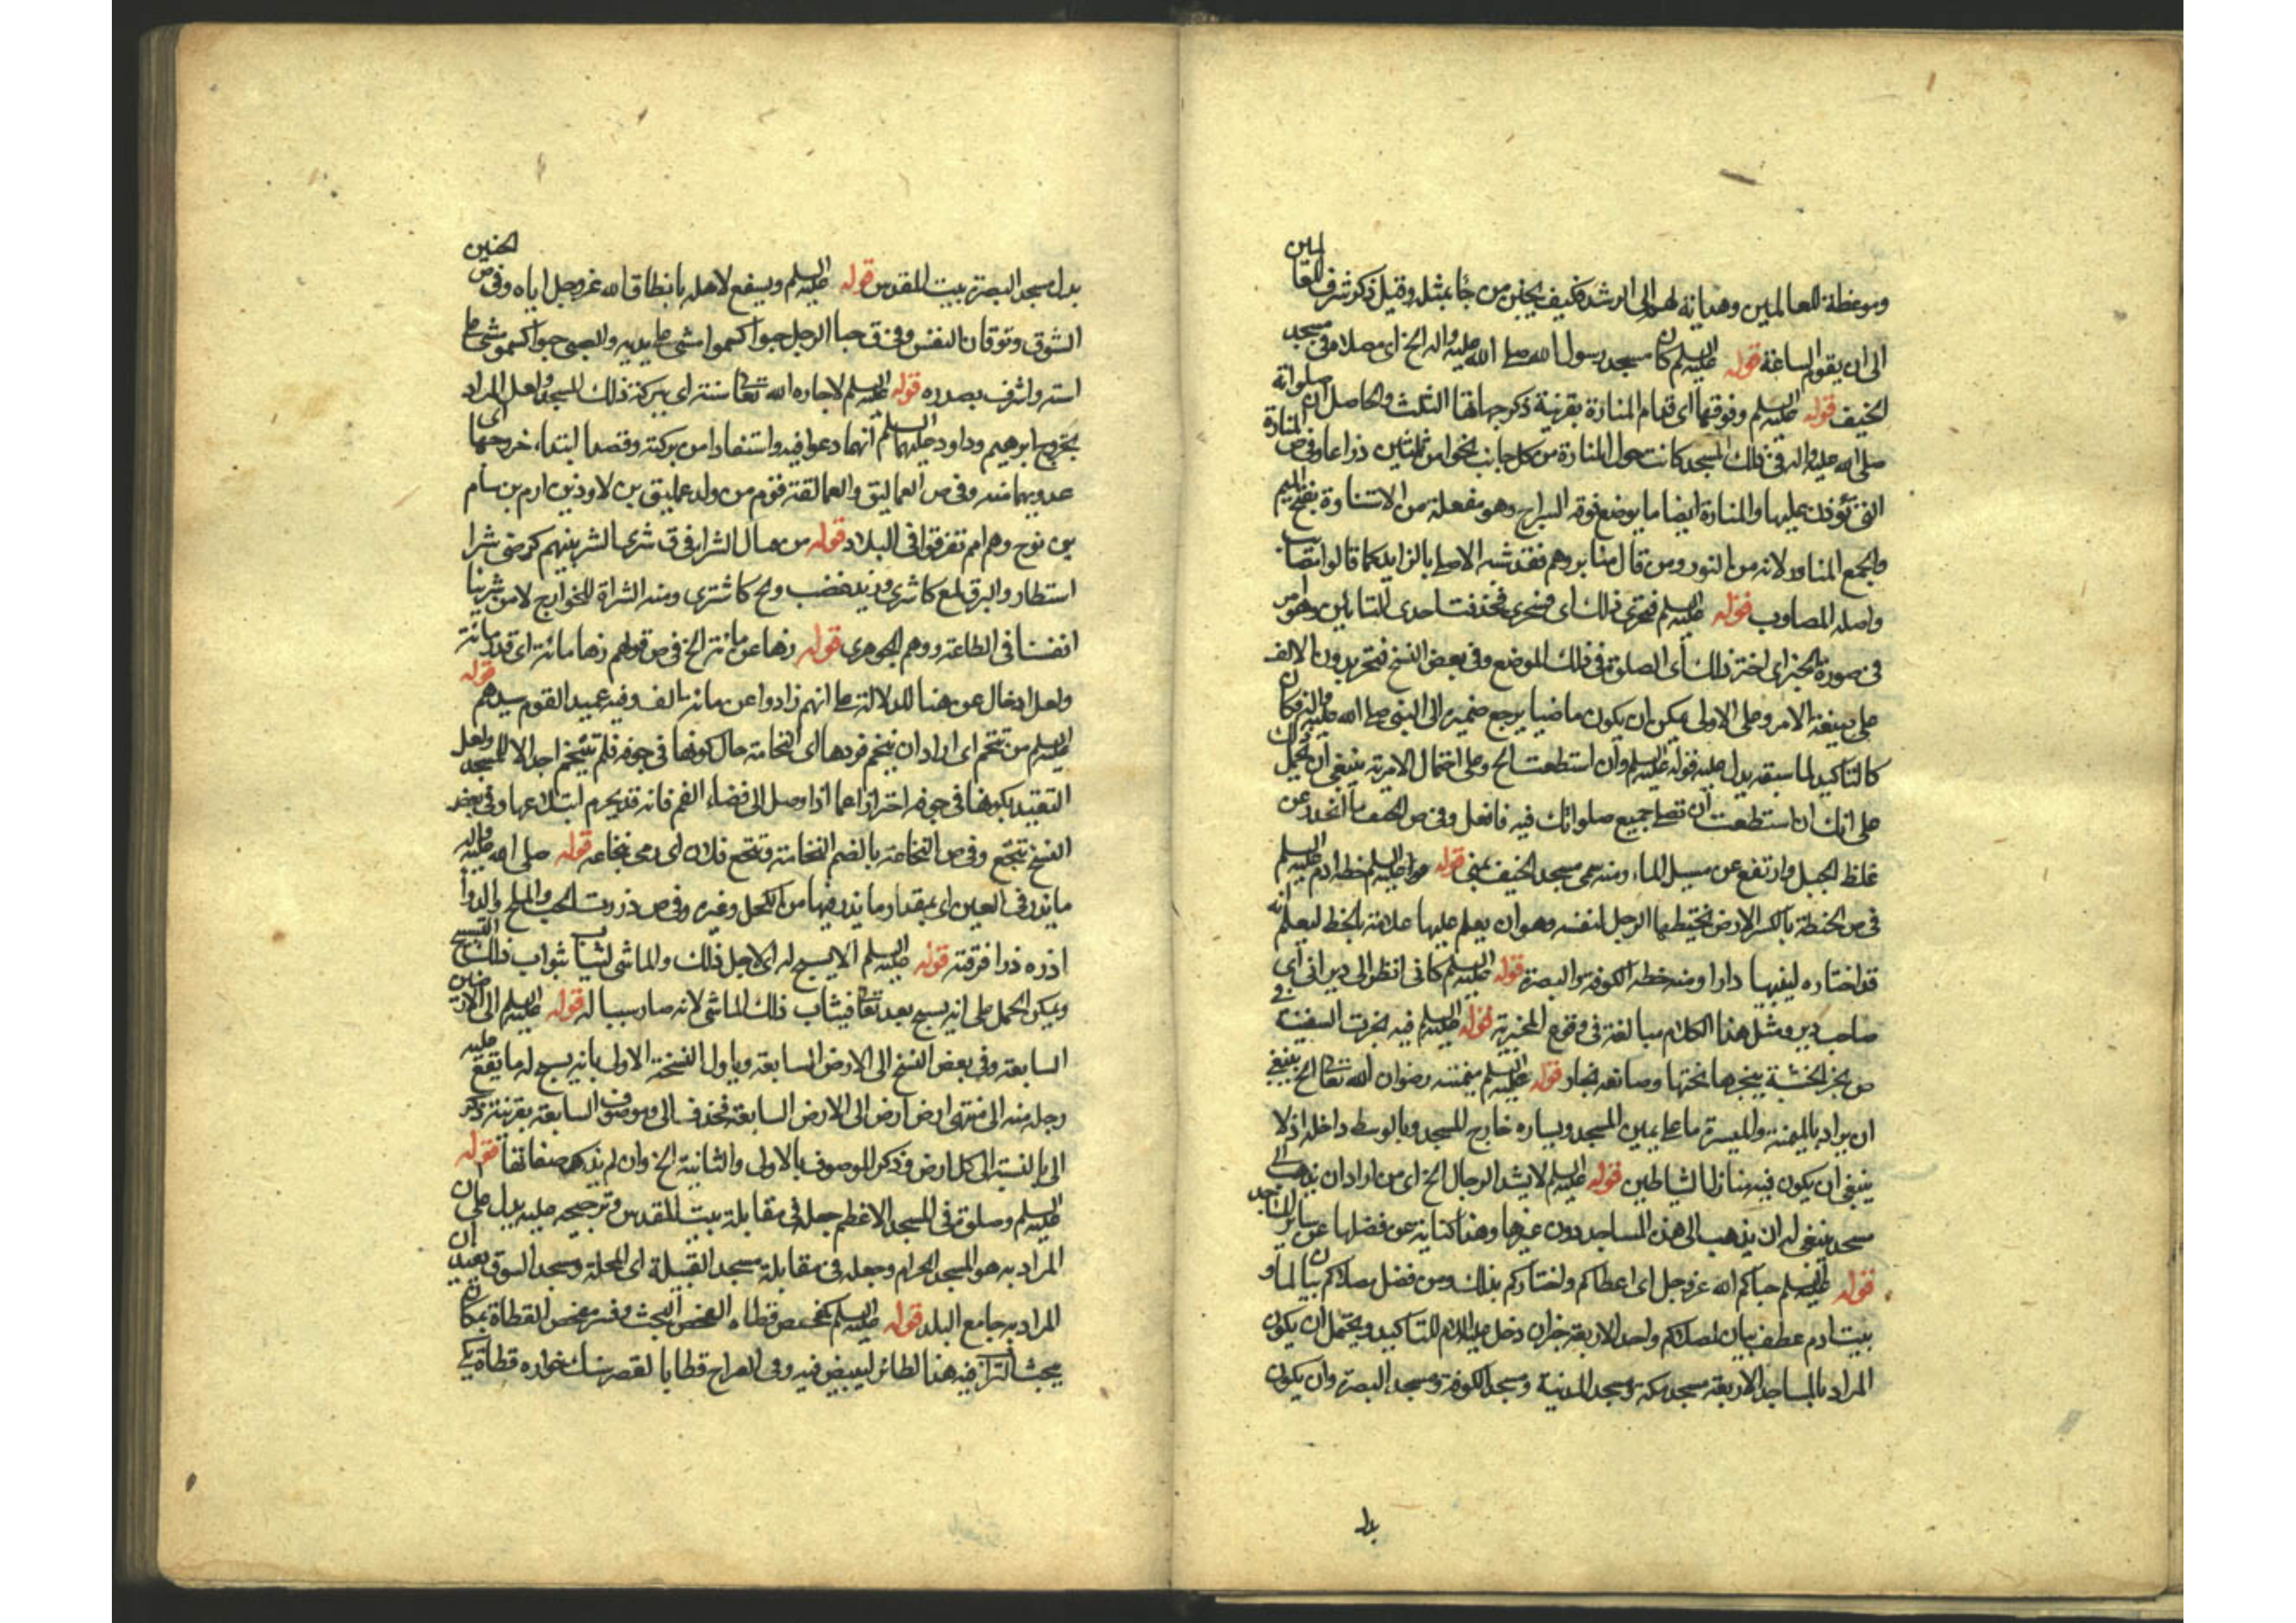 وموعظة للعالمين وهداية لهم الى الرشد فكيف يحنن من جاء بمثل وقيل ذكر شرف للعالمين
الى ان يقوم الساعة قوله عليه السلم كان مسجد رسول الله صلى الله عليه واله الخ اى مصلاه فى مسجد
الخيف قوله عليه السلم وفوقها اى قدام المنارة بقرينة ذكر جهاتها الثلث والحاصل ان صلواته
صلى الله عليه واله فى ذلك المسجد كانت حول المنارة من كل جانب نحوا من ثلثين ذراعا وفى ص المنارة
التى يؤذن عليها والمنارة ايضا ما يوضع فوقه السراج وهو مفعلة من الاستنارة بفتح الميم
والجمع المناور لانه من النور ومن قال منابر وهمز فقد شبه الاصلى بالزايد كما قالوا مصائب
واصله المصاوب قوله عليه السلم فتحرى ذلك اى فتتحرى فحذفت احدى التائين وهو امر
فى صورة الخبر اى اختر ذلك اى الصلوة فى ذلك الموضع وفى بعض النسخ فتحر بدون الالف
على صيغة الامر وعلى الاولى يمكن ان يكون ماضيا يرجع ضميره الى النبى صلى الله عليه واله فكان
كالتاكيد لما سبقه يدل عليه قوله عليه السلم وان استطعت الخ وعلى احتمال الامرية ينبغى ان يحمل
على انك ان استطعت ان تصلى جميع صلواتك فيه فافعل وفى ص الخيف ما انحدر عن
غلظ الجبل وارتفع عن مسيل الماء ومنه سمى مسجد الخيف بمنى قوله عليه السلم خطه ادم عليه السلم
فى ص الخطة بالكسر الارض يختطها الرجل لنفسه وهو ان يعلم عليها علامة بالخط ليعلم انه
قد اختاره ليبنيها دارا ومنه خطط الكوفه والبصرة قوله عليه السلم كانى انظر الى ديرانى اى
صاحب دير ومثل هذا الكلام مبالغة فى وقوع المخبر به قوله عليه السلم فيه نجرت السفينة فى
ص نجر الخشبة ينجرها نحتها وصانعه نجار قوله عليه السلم ميمنته رضوان الله تعالى الخ ينبغى
ان يراد بالميمنة والميسرة ما على يمين المسجد ويساره خارج المسجد وبالوسط داخله اذ لا
ينبغى ان يكون فيه منازل الشياطين قوله عليه السلم لا يشد الرحال الخ اى من اراد ان يذهب الى
مسجد ينبغى له ان يذهب الى هذه المساجد دون غيرها وهذا كناية عن فضلها عن ساير المساجد
قوله عليه السلم حباكم الله عز وجل اى اعطاكم واختاركم بذلك ومن فضل مصلاكم بيان لما و
بيت ادم عطف بيان لمصلاكم واحد الاربعة خبر ان دخل عليه اللام للتاكيد ويحتمل ان يكون
المراد بالمساجد الاربعة مسجد مكة ومسجد المدينة ومسجد الكوفة ومسجد البصرة وان يكون
بدل
بدل مسجد البصرة بيت المقدس قوله عليه السلم ويشفع لاهله بانطاق الله عز وجل اياه وفى ص الحنين
الشوق وتوقان النفس وفى ق حبا الرجل حبوا كسموا مشى على يديه والصبى حبوا كسهو مشى على
استه واشرف بصدره قوله عليه السلم لاجاره الله تعالى سنة اى ببركة ذلك المسجد ولعل المراد
بخروج ابرهيم وداود عليهما السلم انهما دعوا فيه واستفادا من بركته وقصدا ابتداء خروجهما اى
عدويهما منه وفى ص العماليق والعمالقة قوم من ولد عمليق بن لاوذ بن ارم بن سام
بن نوح وهم امم تفرقوا فى البلاد قوله من هال الشراة فى ق شرى الشر بينهم كرضى شرا
استطار والبرق لمع كاشرى وزيد غضب ولج كاشترى ومنه الشراة للخوارج لا من شرينا
انفسنا فى الطاعة ووهم الجوهرى قوله زهاء عن مائة الخ فى ص قولهم زهاء مائة اى قدر مائة
ولعل ادخال عن هنا للدلالة على انهم زادوا عن مائة الف وفيه عميد القوم سيدهم قوله
عليه السلم من تنخم اى اراد ان يتنخم فردها اى النخامة حال كونها فى جوفه فلم يتنخم اجلالا للمسجد ولعل
التقييد بكونها فى جوفه احترازا عما اذا وصل الى فضاء الفم فانه قد يحرم ابتلاعها وفى بعض
النسخ تنخع وفى ص النخاعة بالضم النخامة وتنخع فلان اى رمى بنخاعه قوله صلى الله عليه واله
ما يذر فى العين اى بمقدار ما يذر فيها من الكحل وغيره وفى ص ذررت الحب والملح والدواء
اذره ذرا فرقته قوله عليه السلم الا يسبح له اى لاجل ذلك والماشى يثاب ثواب ذلك التسبيح
ويمكن الحمل على انه يسبح بعد تعالى فيثاب ذلك الماشى لانه صار سببا له قوله عليه السلم الى الارضين
السابعة وفى بعض النسخ الى الارض السابعة وياول النسخة الاولى بانه يسبح له ما يقع عليه
رجله منه الى منتهى ارض ارض الى الارض السابعة فحذف الى وموصوف السابعة بقرينة ذكر
الى بالنسبة الى كل ارض وذكر الموصوف بالاولى والثانية الخ وان لم يذكر صفاتها قوله
عليه السلم وصلوة فى المسجد الاعظم جعله فى مقابلة بيت المقدس وترجيحه عليه يدل على ان
المراد به هو المسجد الحرام وجعله فى مقابلة مسجد القبيلة اى المحلة ومسجد السوق يفيد ان
المراد به جامع البلد قوله عليه السلم كمفحص قطاة الفحص البحث وفسر مفحص القطاة بمكان
يبحث التراب فيه هذا الطائر ليبيض فيه وفى الصراح قطا بالقصر سنك خواره قطاة يكى